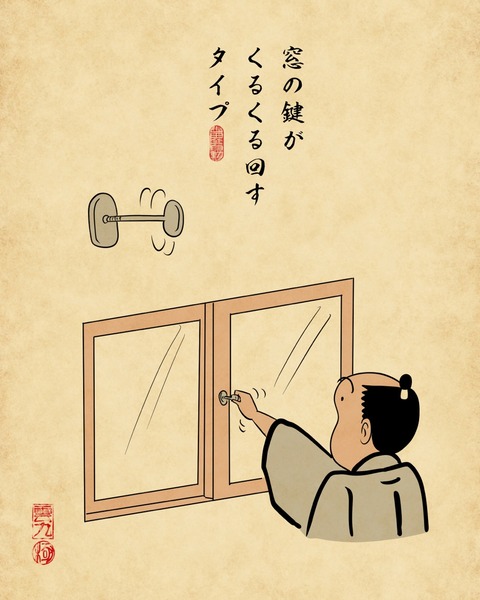 窓の鍵が
くるくる回す
タイプ